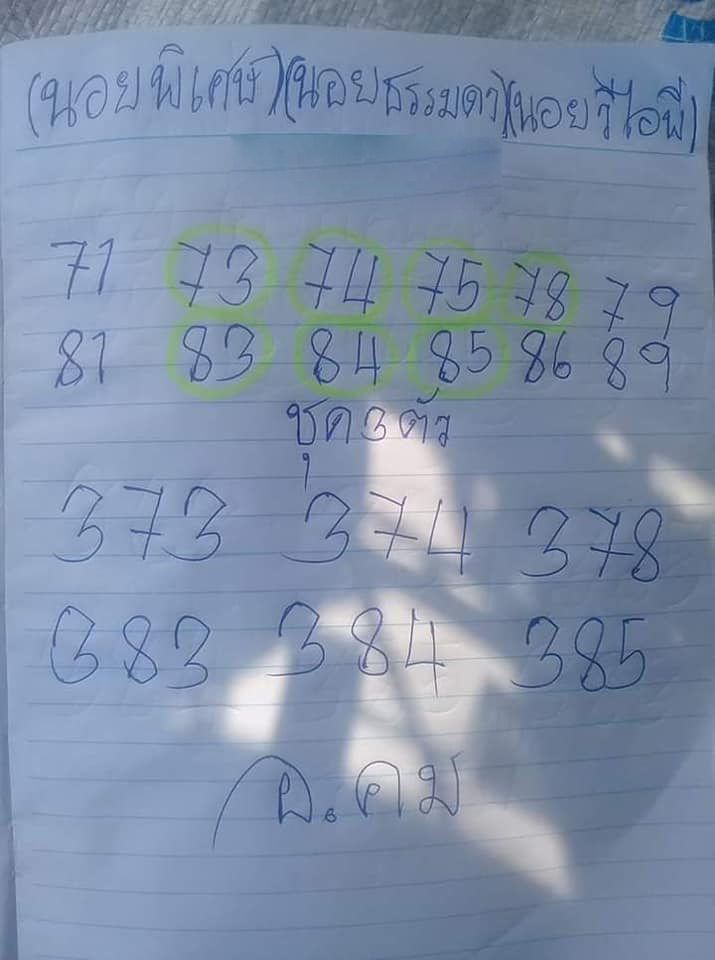 (นอยพิเศษ)(นอยธรรมดา)(นอยวีไอพี)
71 73 74 75 78 79
81 83 84 85 86 89
ชุด3ตัว
373 374 378
383 384 385
อ.คม